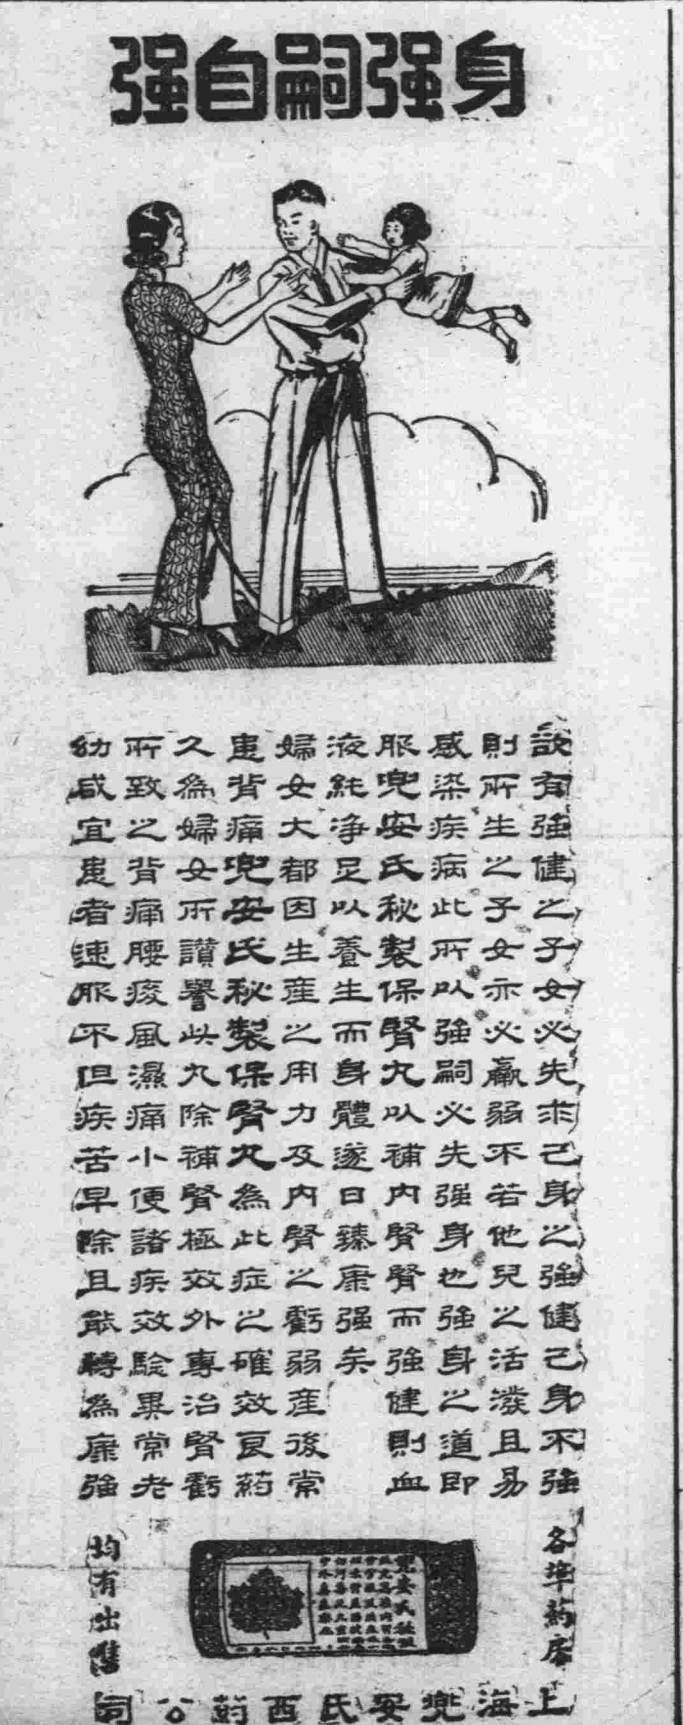 身强嗣自强
設有強健之子女必先求己身之強健己身不強
則所生之子女亦必羸弱不若他兒之活潑且易
感染疾病此所以強嗣必先強身也強身之道即
服兜安氏秘製保腎丸以補內腎腎而強健則血
液純净足以養生而身體遂日臻康强矣
婦女大都因生產之用力及內腎之虧弱產後常
患背痛兜安氏秘製保腎丸為此症之確效良药
久為婦女所讚譽此丸除補腎極效外專治腎虧
所致之背痛腰痠風濕痛小便諸疾效驗異常老
幼咸宜患者速服不但疾苦早除且能轉為康強
各埠药房
均有出售
上海兜安氏西药公司